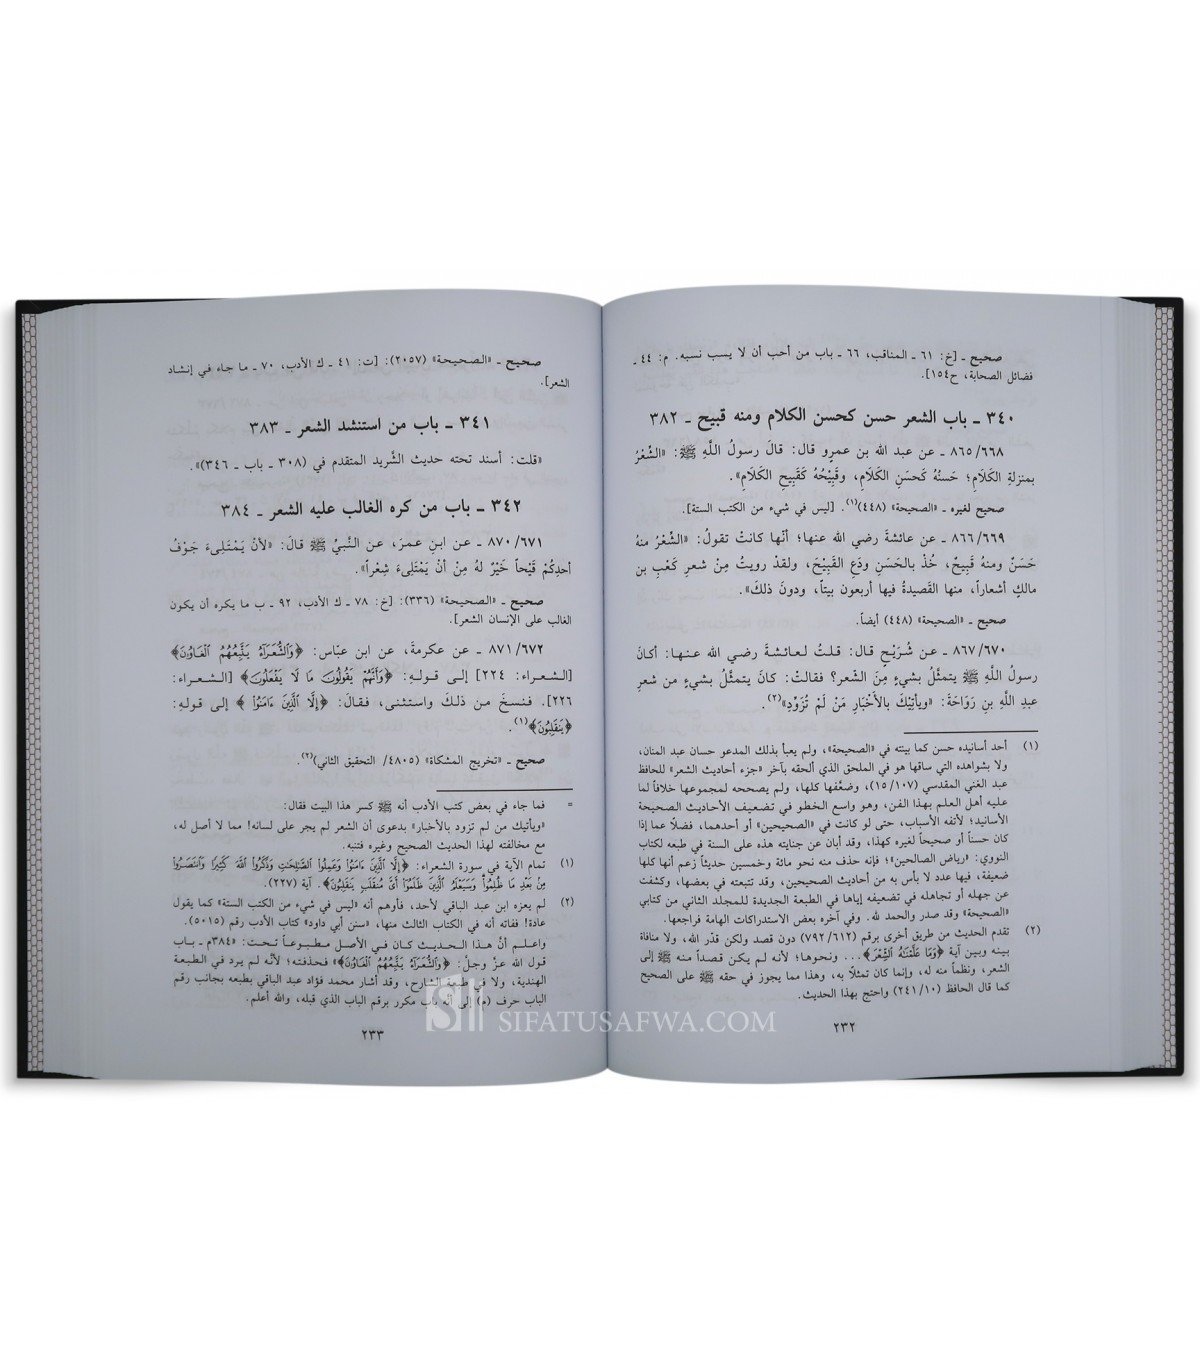 صحيح ـ [خ: ٦١ ـ المناقب، ٦٦ ـ باب من أحب أن لا يسب نسبه. م: ٤٤ ـ
فضائل الصحابة، ح١٥٤].
٣٤٠ ـ باب الشعر حسن كحسن الكلام ومنه قبيح ـ ٣٨٢
٨٦٥/٦٦٨ ـ عن عبد الله بن عمرٍو قال: قالَ رسولُ اللَّهِ ﷺ: «الشِّعْرُ
بمنزلةِ الكَلَامِ؛ حَسَنُهُ كَحسَنِ الكَلَامِ، وقَبِيْحُهُ كَقَبِيحِ الكَلَامِ».
صحيح لغيره ـ «الصحيحة» (٤٤٨)(١). [ليس في شيء من الكتب الستة].
٨٦٦/٦٦٩ ـ عن عائشةَ رضي الله عنها؛ أنّها كانتْ تقولُ: «الشِّعْرُ منهُ
حَسَنٌ ومنهُ قَبِيحٌ، خُذْ بالحَسَنِ ودَعِ القَبِيْحَ، ولقدْ رويتُ مِنْ شعرِ كَعْبِ بن
مالكٍ أشعاراً، منها القَصيدةُ فيها أربعون بيتاً، ودونَ ذلكَ».
صحيح ـ «الصحيحة» (٤٤٨) أيضاً.
٨٦٧/٦٧٠ ـ عن شُرَيْحٍ قال: قلتُ لعائشةَ رضي الله عنها: أكانَ
رسولُ اللَّهِ ﷺ يتمثَّلُ بشيءٍ مِنَ الشِّعر؟ فقالتْ: كانَ يتمثَّلُ بشيءٍ من شعرِ
عبدِ اللَّهِ بنِ رَوَاحَةَ: «ويأتِيْكَ بالأَخْبارِ مَنْ لَمْ تُزَوِّدِ»(٢).
(١) أحد أسانيده حسن كما بينته في «الصحيحة»، ولم يعبأ بذلك المدعو حسان عبد المنان،
ولا بشواهده التي ساقها هو في الملحق الذي ألحقه بآخر «جزء أحاديث الشعر» للحافظ
عبد الغني المقدسي (١٥/١٠٧)، وضعَّفها كلها، ولم يصححه لمجموعها خلافاً لما
عليه أهل العلم بهذا الفن، وهو واسع الخطو في تضعيف الأحاديث الصحيحة
الأسانيد؛ لأتفه الأسباب، حتى لو كانت في «الصحيحين» أو أحدهما، فضلًا عما إذا
كان حسناً أو صحيحاً لغيره كهذا، وقد أبان عن جنايته هذه على السنة في طبعه لكتاب
النووي: «رياض الصالحين»؛ فإنه حذف منه نحو مائة وخمسين حديثاً زعم أنها كلها
ضعيفة، فيها عدد لا بأس به من أحاديث الصحيحين، وقد تتبعته في بعضها، وكشفت
عن جهله أو تجاهله في تضعيفه إياها في الطبعة الجديدة للمجلد الثاني من كتابي
«الصحيحة» وقد صدر والحمد لله. وفي آخره بعض الاستدراكات الهامة فراجعها.
(٢) تقدم الحديث من طريق أخرى برقم (٧٩٢/٦١٢) دون قصد ولكن قدّر الله، ولا منافاة
بينه وبين آية ﴿وَمَا عَلَّمْنَاهُ الشِّعْرَ﴾... ونحوها؛ لأنه لم يكن قصداً منه ﷺ إلى
الشعر، ونظماً منه له، وإنما كان تمثلًا به، وهذا مما يجوز في حقه ﷺ على الصحيح
كما قال الحافظ (٢٤١/١٠) واحتج بهذا الحديث.
٢٣٢
صحيح ـ «الصحيحة» (٢٠٥٧): [ت: ٤١ ـ ك الأدب، ٧٠ ـ ما جاء في إنشاد
الشعر].
٣٤١ ـ باب من استنشد الشعر ـ ٣٨٣
«قلت: أسند تحته حديث الشّريد المتقدم في (٣٠٨ ـ باب ـ ٣٤٦)».
٣٤٢ ـ باب من كره الغالب عليه الشعر ـ ٣٨٤
٨٧٠/٦٧١ ـ عن ابنِ عمرَ، عن النَّبيِّ ﷺ قالَ: «لأنْ يَمْتَلِىءَ جَوْفُ
أحدِكُمْ قَيْحاً خَيْرٌ لهُ مِنْ أنْ يَمْتَلِىءَ شِعْراً».
صحيح ـ «الصحيحة» (٣٣٦): [خ: ٧٨ ـ ك الأدب، ٩٢ ـ ب ما يكره أن يكون
الغالب على الإنسان الشعر].
٨٧١/٦٧٢ ـ عن عكرمةَ، عن ابن عبّاس: ﴿وَالشُّعَرَاءُ يَتَّبِعُهُمُ الْغَاوُونَ﴾
[الشعراء: ٢٢٤] إلى قولهِ: ﴿وَأَنَّهُمْ يَقُولُونَ مَا لَا يَفْعَلُونَ﴾ [الشعراء:
٢٢٦]. فنسخَ من ذلكَ واستثنى، فقالَ: ﴿إِلَّا الَّذِينَ ءَامَنُوا﴾ إلى قولهِ:
﴿يَنقَلِبُونَ﴾(١).
صحيح ـ «تخريج المشكاة» (٤٨٠٥/ التحقيق الثاني)(٢).
= فما جاء في بعض كتب الأدب أنه ﷺ كسر هذا البيت فقال:
«ويأتيك من لم تزود بالأخبار» بدعوى أن الشعر لم يجر على لسانه! مما لا أصل له،
مع مخالفته لهذا الحديث الصحيح وغيره فتنبه.
(١) تمام الآية في سورة الشعراء: ﴿إِلَّا الَّذِينَ ءَامَنُوا وَعَمِلُوا الصَّالِحَاتِ وَذَكَرُوا اللَّهَ كَثِيرًا وَانتَصَرُوا
مِنْ بَعْدِ مَا ظُلِمُوا وَسَيَعْلَمُ الَّذِينَ ظَلَمُوا أَيَّ مُنقَلَبٍ يَنقَلِبُونَ﴾. آية (٢٢٧).
(٢) لم يعزه ابن عبد الباقي لأحد، فأوهم أنه «ليس في شيء من الكتب الستة» كما يقول
عادة! ففاته أنه في الكتاب الثالث منها، «سنن أبي داود» كتاب الأدب رقم (٥٠١٥).
واعلم أنّ هذا الحديث كان في الأصل مطبوعاً تحت: «٣٨٤م ـ باب
قول الله عزّ وجلّ: ﴿وَالشُّعَرَاءُ يَتَّبِعُهُمُ الْغَاوُونَ﴾» فحذفته؛ لأنّه لم يرد في الطبعة
الهندية، ولا في طبعة الشارح، وقد أشار محمد فؤاد عبد الباقي بطبعه بجانب رقم
الباب حرف (م) إلى أنه باب مكرر برقم الباب الذي قبله، والله أعلم.
٢٣٣
SIFATUSAFWA.COM